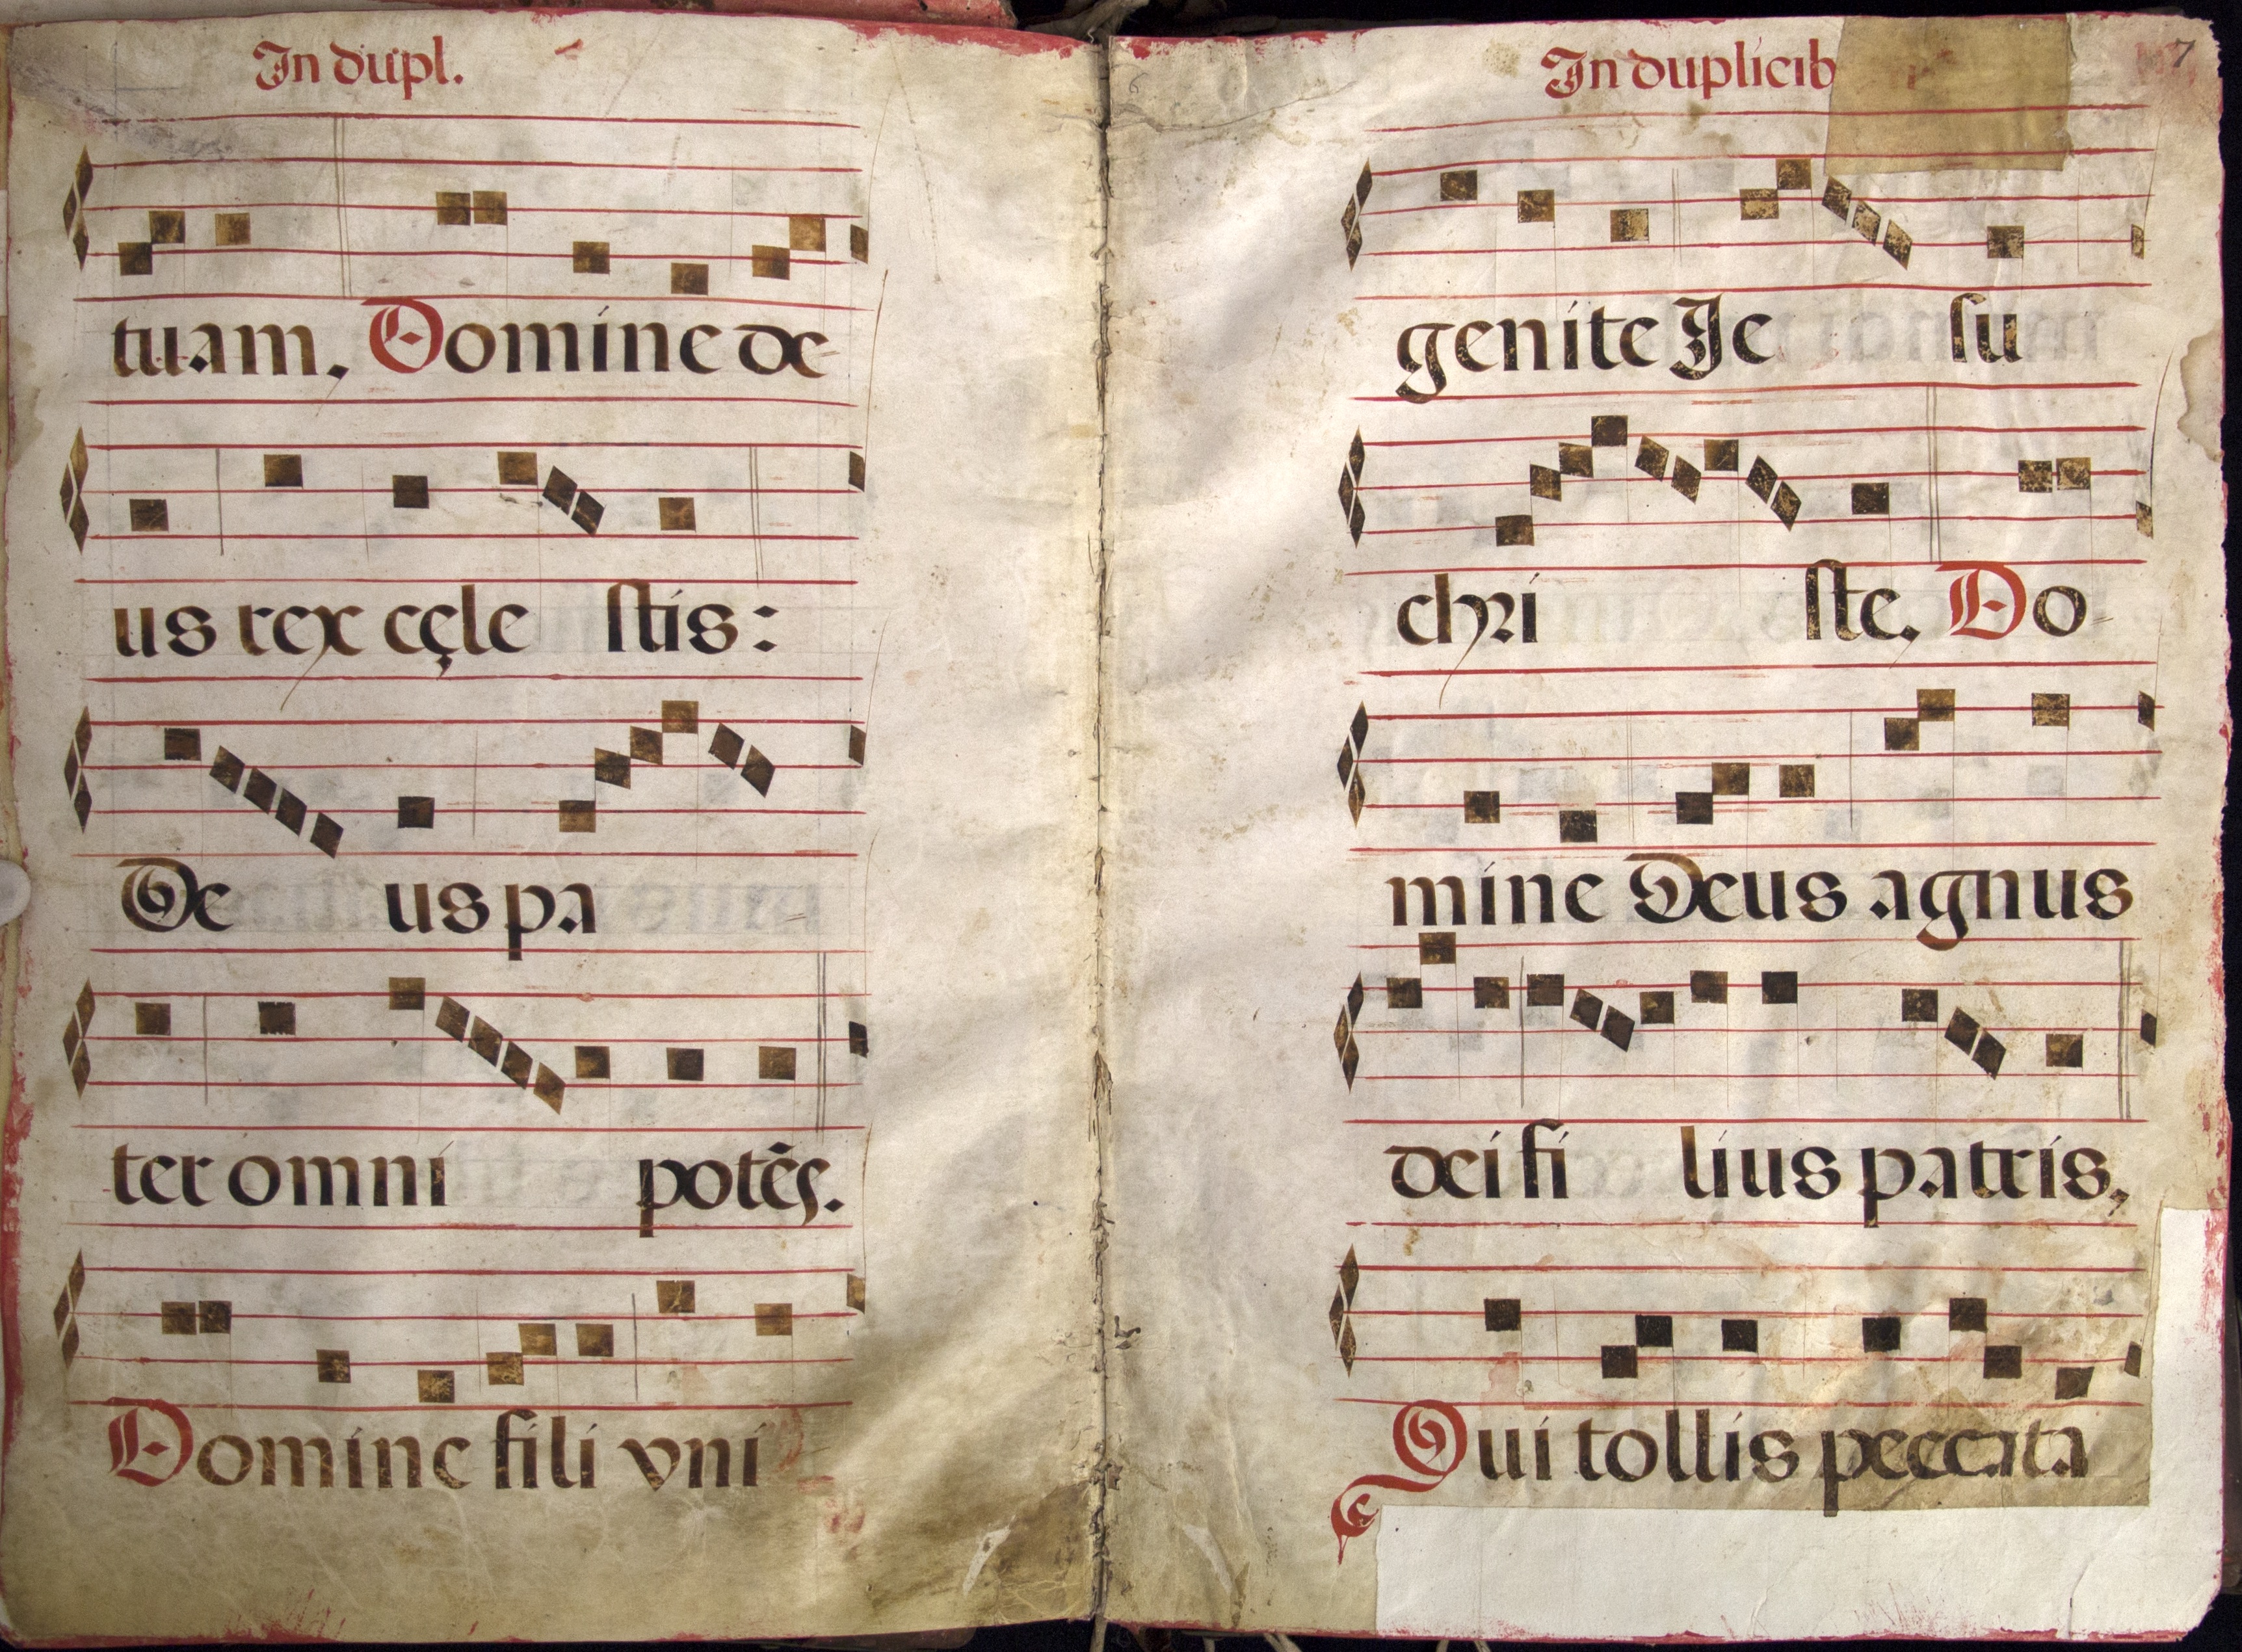 In dupl.
tuam. Domine de-
us rex cęle stis:
De us pa
ter omni potēs.
Domine fili vni
In duplicib
7
6
genite Je su
christe. Do-
mine Deus agnus
dei fi lius patris,
Qui tollis peccata